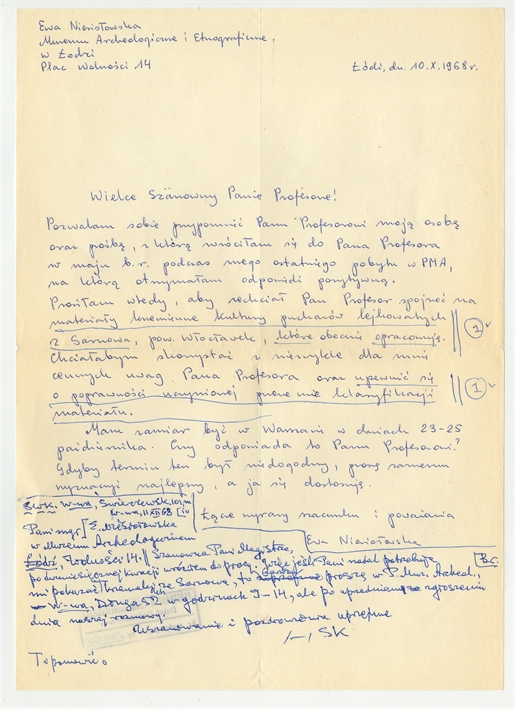 Ewa Niesiołowska
Muzeum Archeologiczne i Etnograficzne
w Łodzi
Plac Wolności 14
Łódź, dn. 10.X.1968 r.
Wielce Szanowny Panie Profesorze!
Pozwalam sobie przypomnieć Panu Profesorowi moją osobę
oraz prośbę, z którą wróciłam się do Pana Profesora
w maju b.r. podczas mego ostatniego pobytu w PMA,
na którą otrzymałam odpowiedź pozytywną.
Prosiłam wtedy, aby zechciał Pan Profesor spojrzeć na
materiały krzemienne kultury pucharów lejkowatych
z Sarnowa, pow. Włocławek, które obecnie opracowuję. 1
Chciałabym skorzystać z niezwykle dla mnie
cennych uwag Pana Profesora oraz upewnić się
o poprawności uczynionej przeze mnie klasyfikacji 1
materiału.
Mam zamiar być w Warszawie w dniach 23-25
października. Czy odpowiada to Panu Profesorowi?
Gdyby termin ten był niedogodny, proszę samemu
wyznaczyć najlepszy, a ja się dostosuję.
Łączę wyrazy szacunku i poważania
Ewa Niesiołowska
W-wa, 11 XII 68
Pani mgr E. Niesiołowska
w Muzeum Archeologicznem
Łódź, Wolności 14. Szanowna Pani Magistrze,
po dwumiesięcznej kuracji wróciłem do pracy. Więc jeśli Pani nadal potrzebuje
mi pokazać krzemienie z Sarnowa, to proszę w P. Muz. Archeol.,
W-wa, Długa 52 w godzinach 9-14, ale po uprzednim zgłoszeniu
dnia naszej rozmowy.
Uszanowanie i pozdrowienia uprzejme
SK